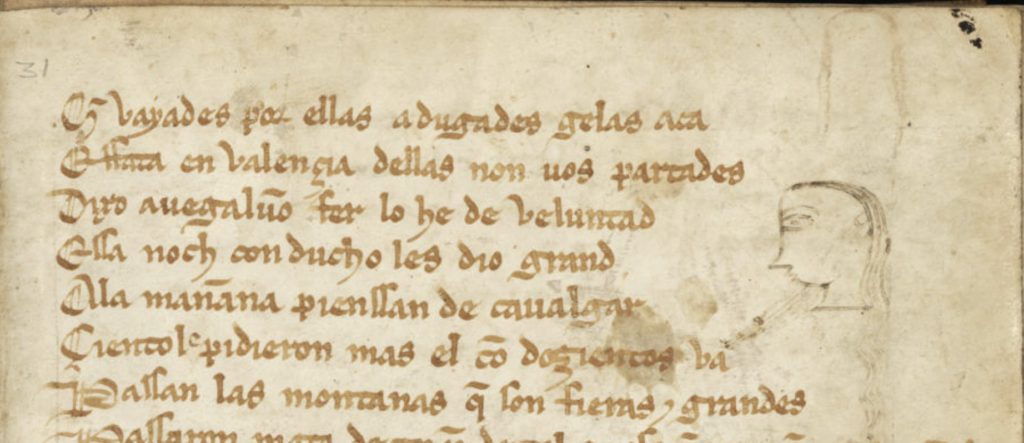 31
Q̃ vayades por ellas adugades gelas aca
E ffata en valençia dellas non uos partades
Dixo auegaluõ fer lo he de veluntad
Essa noch conducho les dio grand
Ala mañana pienssan de caualgar
Çiento lᵉ pidieron mas el cõ dozientos va
Passan las montanas q̃ son fieras ⁊ grandes
Passaron mata de